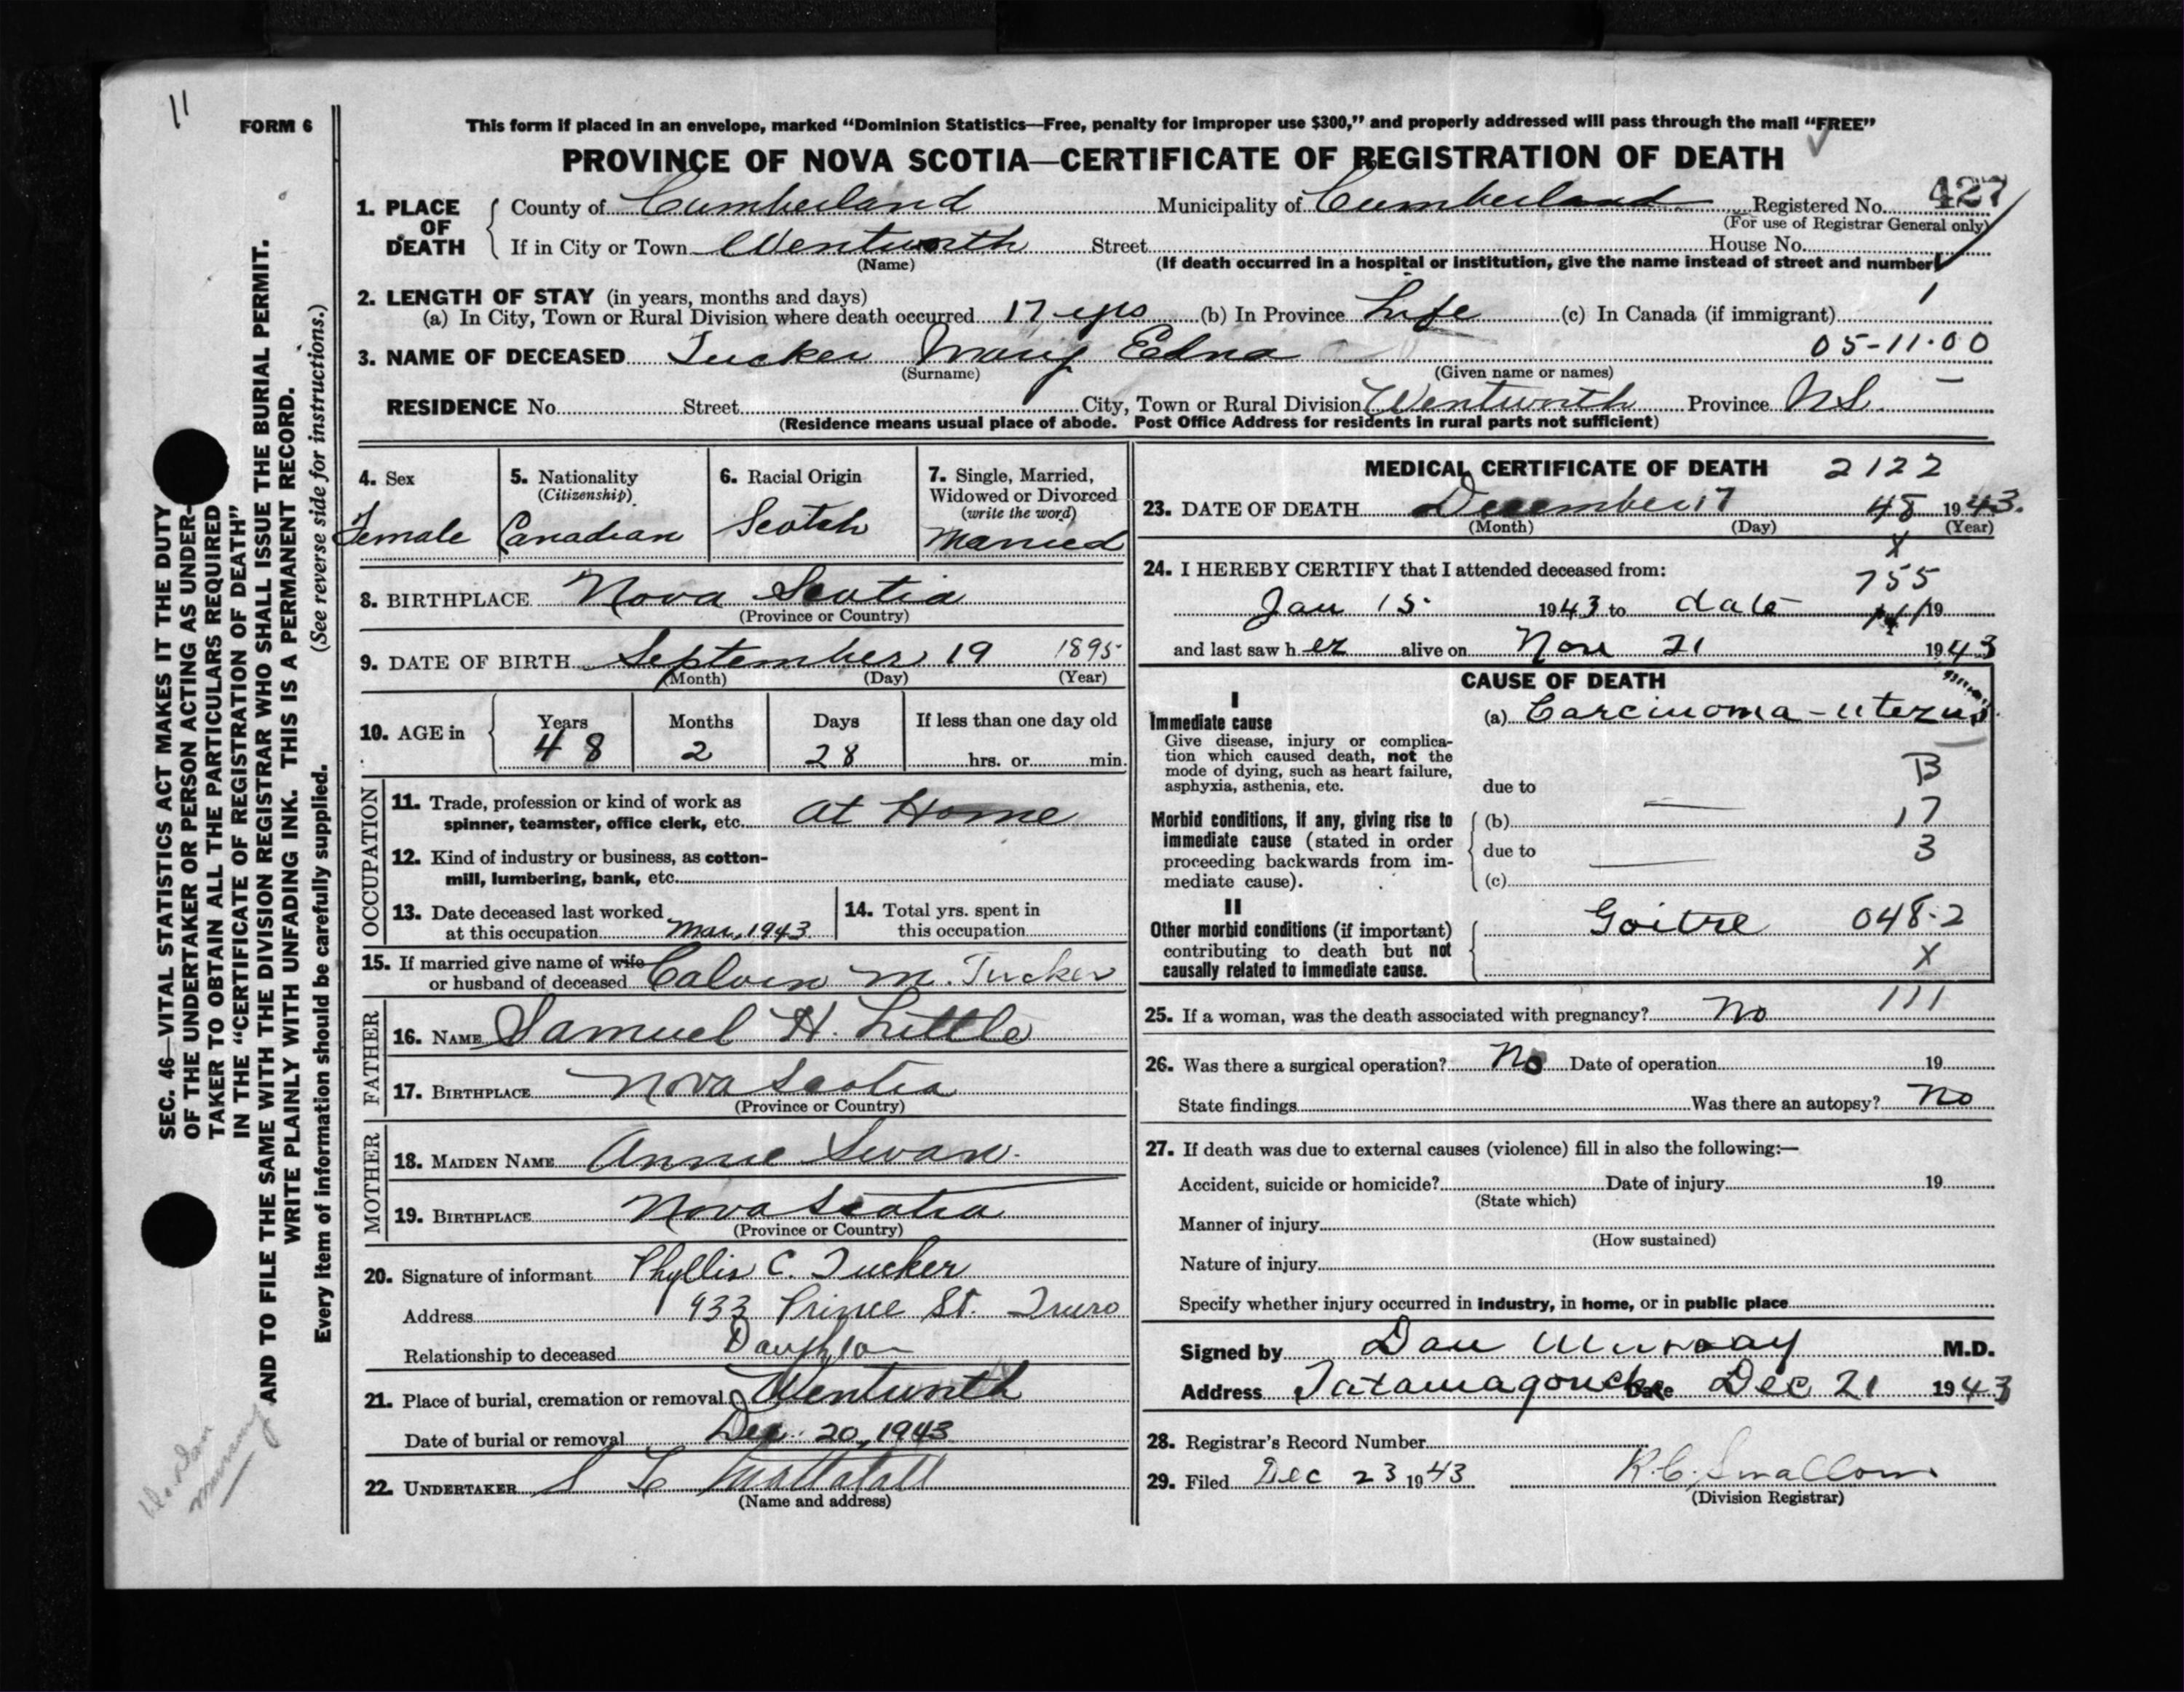 11
FORM 6
This form if placed in an envelope, marked “Dominion Statistics—Free, penalty for improper use $300,” and properly addressed will pass through the mail “FREE”
PROVINCE OF NOVA SCOTIA—CERTIFICATE OF REGISTRATION OF DEATH
1. PLACE OF DEATH
County of Cumberland Municipality of Cumberland Registered No. 427
(For use of Registrar General only)
If in City or Town Wentworth Street House No.
(Name) (If death occurred in a hospital or institution, give the name instead of street and number)
2. LENGTH OF STAY (in years, months and days)
(a) In City, Town or Rural Division where death occurred 17 yrs (b) In Province Life (c) In Canada (if immigrant) 1
3. NAME OF DECEASED Tucker Mary Edna 05-11-00
(Surname) (Given name or names)
RESIDENCE No. Street City, Town or Rural Division Wentworth Province N.S.
(Residence means usual place of abode. Post Office Address for residents in rural parts not sufficient)
4. Sex
Female
5. Nationality
(Citizenship)
Canadian
6. Racial Origin
Scotch
7. Single, Married,
Widowed or Divorced
(write the word)
Married
8. BIRTHPLACE Nova Scotia
(Province or Country)
9. DATE OF BIRTH September 19 1895
(Month) (Day) (Year)
10. AGE in
Years Months Days If less than one day old
48 2 28 hrs. or min.
OCCUPATION
11. Trade, profession or kind of work as
spinner, teamster, office clerk, etc. at Home
12. Kind of industry or business, as cotton-
mill, lumbering, bank, etc.
13. Date deceased last worked
at this occupation Mar, 1943
14. Total yrs. spent in
this occupation
15. If married give name of wife
or husband of deceased Calvin M. Tucker
FATHER
16. NAME Samuel H. Little
17. BIRTHPLACE Nova Scotia
(Province or Country)
MOTHER
18. MAIDEN NAME Annie Swan
19. BIRTHPLACE Nova Scotia
(Province or Country)
20. Signature of informant Phyllis C. Tucker
Address 933 Prince St. Truro
Relationship to deceased Daughter
21. Place of burial, cremation or removal Wentworth
Date of burial or removal Dec. 20, 1943
22. UNDERTAKER
(Name and address)
MEDICAL CERTIFICATE OF DEATH 2122
23. DATE OF DEATH December 17 48 1943.
(Month) (Day) (Year)
X
24. I HEREBY CERTIFY that I attended deceased from:
755
Jan 15 1943 to date 19
and last saw her alive on Nov 21 1943
CAUSE OF DEATH
I
Immediate cause
Give disease, injury or complica-
tion which caused death, not the
mode of dying, such as heart failure,
asphyxia, asthenia, etc.
(a) Carcinoma - uterus
B
due to
Morbid conditions, if any, giving rise to
immediate cause (stated in order
proceeding backwards from im-
mediate cause).
(b) 17
due to 3
(c)
II
Other morbid conditions (if important)
contributing to death but not
causally related to immediate cause.
Goitre 048-2
X
25. If a woman, was the death associated with pregnancy? No 111
26. Was there a surgical operation? No Date of operation 19
State findings Was there an autopsy? No
27. If death was due to external causes (violence) fill in also the following:—
Accident, suicide or homicide? Date of injury 19
(State which)
Manner of injury
(How sustained)
Nature of injury
Specify whether injury occurred in industry, in home, or in public place
Signed by Dan Murray M.D.
Address Tatamagouche Date Dec 21 1943
28. Registrar's Record Number
29. Filed Dec 23 1943 R.C. Smallom
(Division Registrar)
SEC. 46—VITAL STATISTICS ACT MAKES IT THE DUTY
OF THE UNDERTAKER OR PERSON ACTING AS UNDER-
TAKER TO OBTAIN ALL THE PARTICULARS REQUIRED
IN THE “CERTIFICATE OF REGISTRATION OF DEATH”
AND TO FILE THE SAME WITH THE DIVISION REGISTRAR WHO SHALL ISSUE THE BURIAL PERMIT.
WRITE PLAINLY WITH UNFADING INK. THIS IS A PERMANENT RECORD.
Every item of information should be carefully supplied. (See reverse side for instructions.)
Dr. Dan
Murray